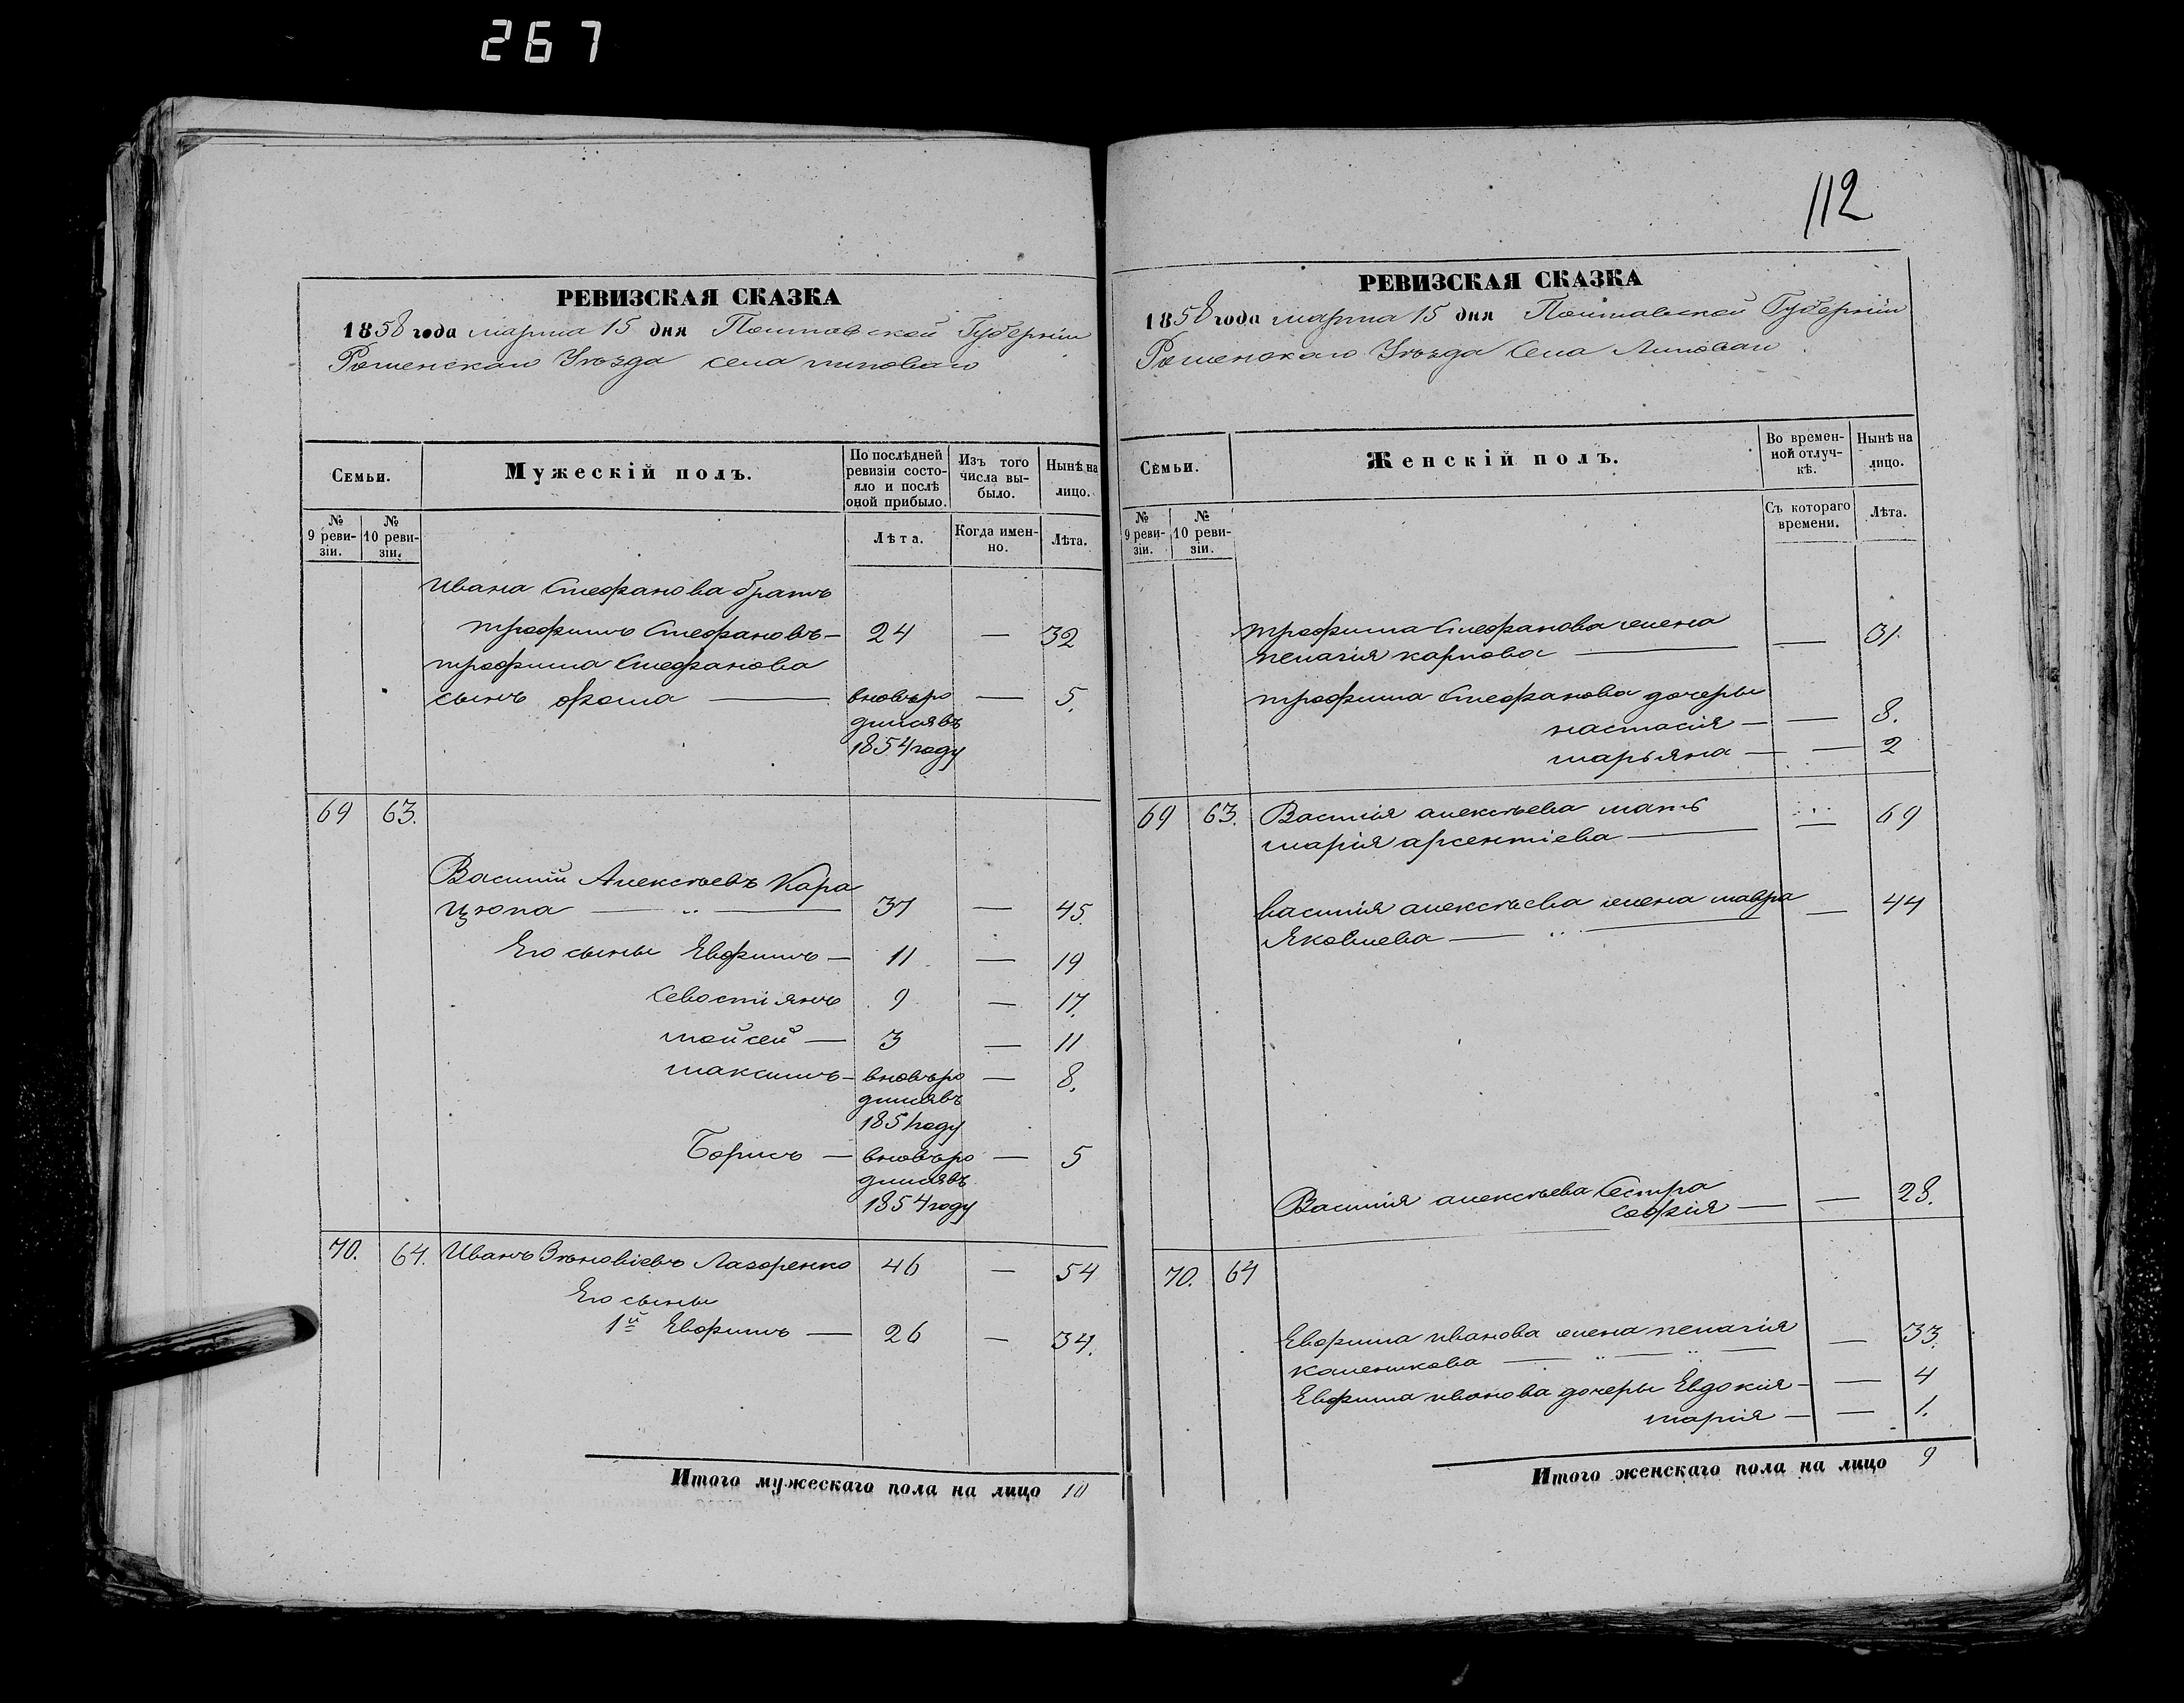 267
РЕВИЗСКАЯ СКАЗКА
1858 года марта 15 дня Полтавской Губерніи
Роменскаго Уѣзда села липоваго
Семьи.
Мужескій полъ.
По послѣдней ревизіи состояло и послѣ оной прибыло.
Изъ того числа выбыло.
Нынѣ на лицо.
№ 9 ревизіи.
№ 10 ревизіи.
Лѣта.
Когда именно.
Лѣта.
Ивана Стефанова братъ
трофимъ Стефановъ — 24 — 32
трофима Стефанова
сынъ фома — вновь ро — 5.
дился въ
1854 году
69 63.
Василій Алексѣевъ Кара
цюпа — 37 — 45.
Его сыны Евфимъ — 11 — 19
Севостіянъ 9 — 17.
мойсей — 3 — 11
максимъ — вновь ро — 8.
дился въ
1851 году
Борисъ — вновь ро — 5
дился въ
1854 году
70. 64. Иванъ Зѣновіевъ Лазоренко 46 — 54
Его сыны
1й Евфимъ — 26 — 34.
Итого мужескаго пола на лицо 10
112
РЕВИЗСКАЯ СКАЗКА
1858 года марта 15 дня Полтавской Губерніи
Роменскаго Уѣзда Села Липоваго
Семьи.
Женскій полъ.
Во временной отлучкѣ.
Нынѣ на лицо.
№ 9 ревизіи.
№ 10 ревизіи.
Съ котораго времени.
Лѣта.
трофима Стефанова жена
пелагія карпова — — 31.
трофима Стефанова дочеры
настасія — — 8.
марьяна — — 2
69 63. Василія алексѣева мать
марія арсентіева — — 69
василія алексѣева жена мавра — 44
Яковлева —
Василія алексѣева Сестра
софія — — 28.
70. 64
Евфима иванова жена пелагія — 33.
каленикова —
Евфима иванова дочеры Евдокія — — 4
марія — — 1.
Итого женскаго пола на лицо 9